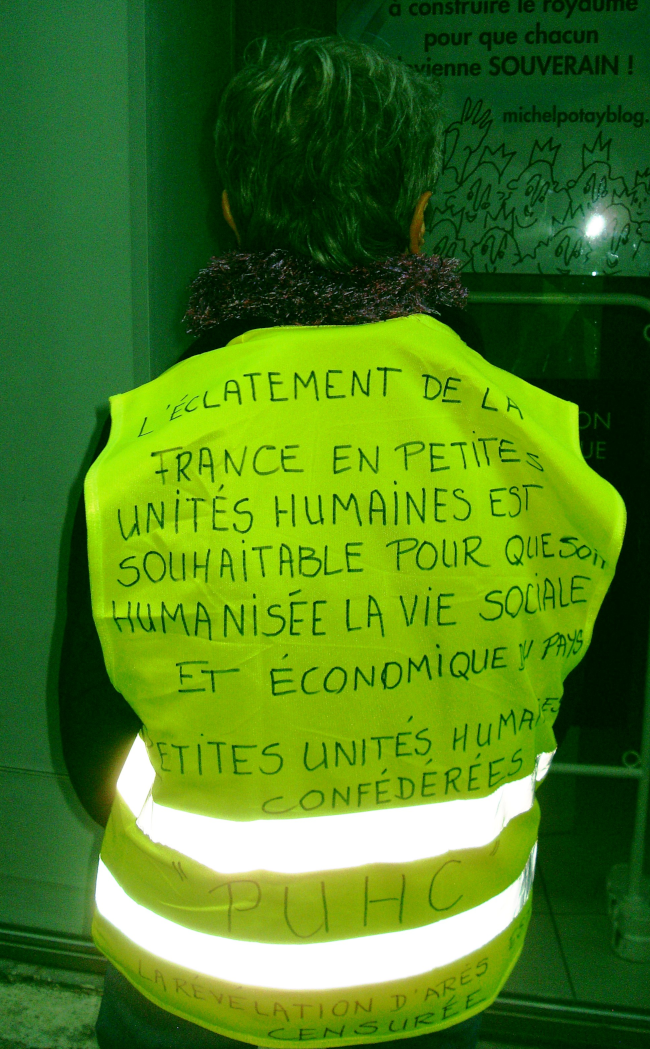 à construire le royaume
pour que chacun
devienne SOUVERAIN !
michelpotayblog.
L'ÉCLATEMENT DE LA
FRANCE EN PETITES
UNITÉS HUMAINES EST
SOUHAITABLE POUR QUE SOIT
HUMANISÉE LA VIE SOCIALE
ET ÉCONOMIQUE DU PAYS
PETITES UNITÉS HUMAINES
CONFÉDÉRÉES
"PUHC"
LA RÉVÉLATION D'ARÈS
CENSURÉE
ON
UE